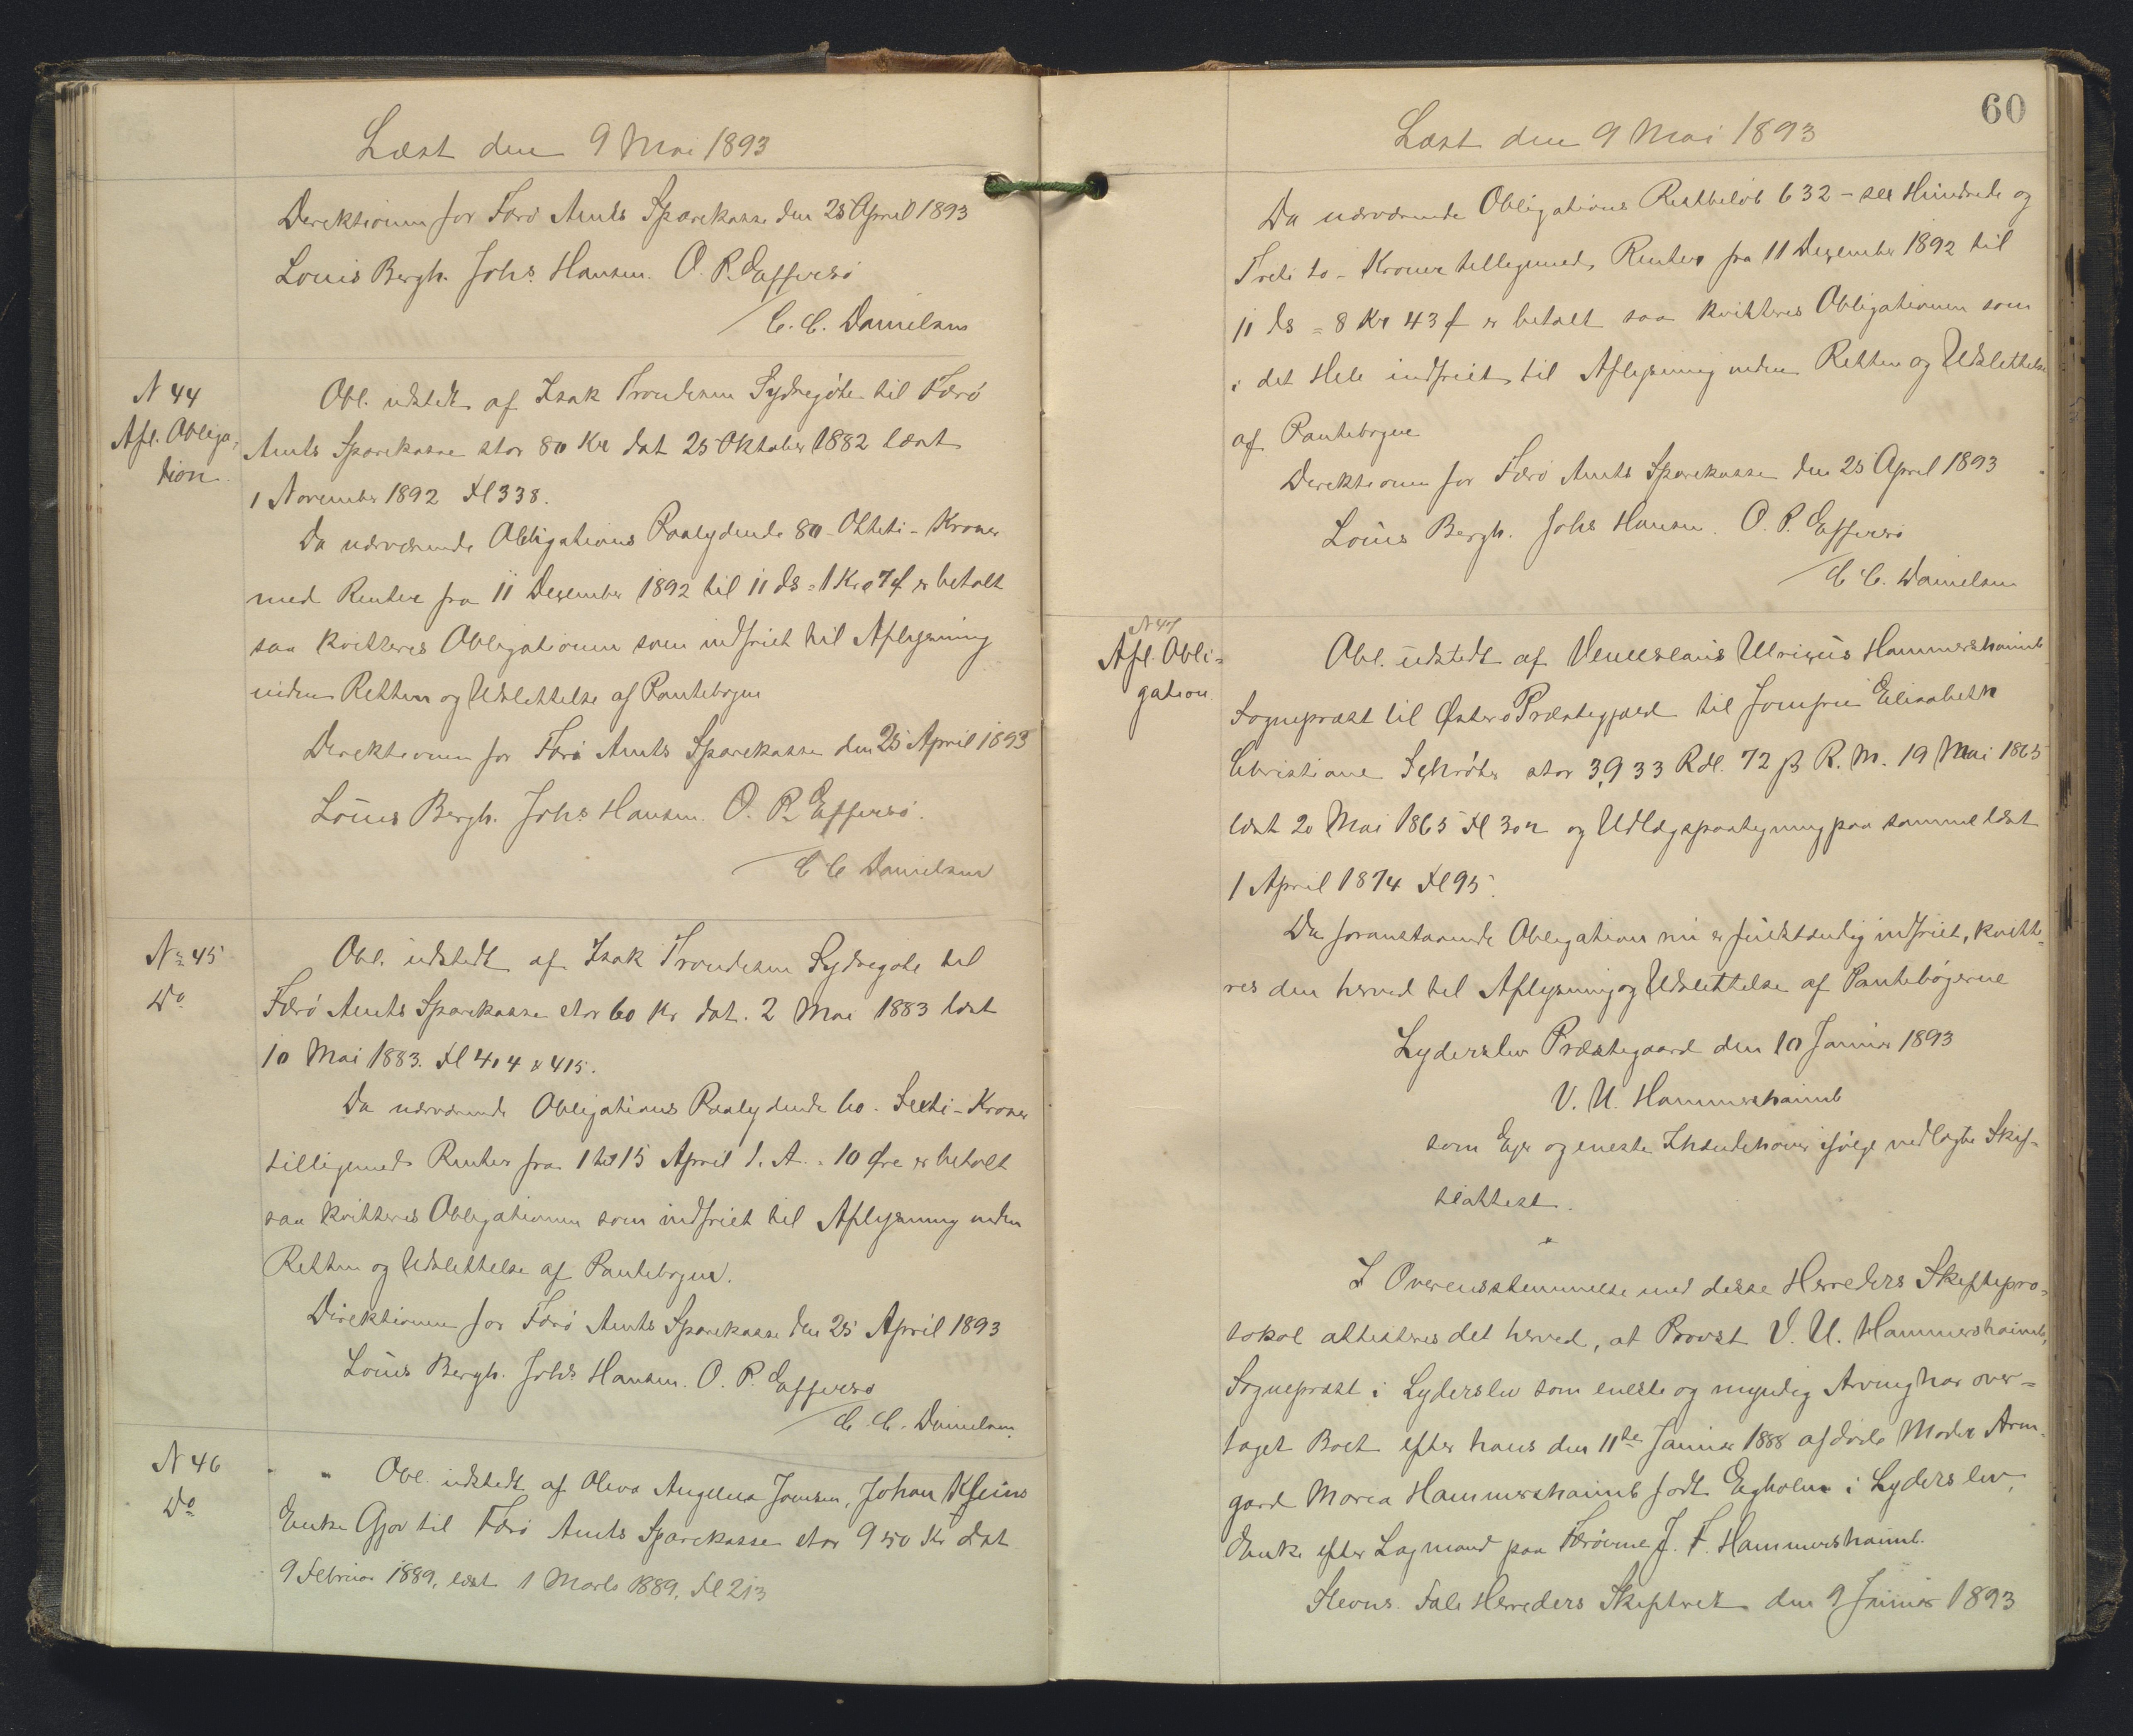 Læst den 9 Mai 1893
Direktionen for Færö Amts Sparekasse den 25 April 1893
Louis Bergh. Johs. Hansen. O. P. Effersö
/ C. C. Danielsen
N 44
Afl. Obliga=
tion.
Obl. udstedt af Isak Trondesen Sydregöte til Færö
Amts Sparekasse stor 80 Kr dat 25 Oktober 1882 læst
1 November 1892 Fl 338.
Da nærværende Obligations Paalydende 80 - Otteti - Kroner
med Renter fra 11 Dezember 1892 til 11 ds = 1 Kr 07 f er betalt
saa kvitteres Obligationen som indfriet til Aflysning
inden Retten og Udslettelse af Pantebogen
Direktionen for Færö Amts Sparekasse den 25 April 1893
Louis Bergh. Johs. Hansen. O. P. Effersö.
/ C C Danielsen
No 45
Do
Obl. udstedt af Isak Trondesen Sydregöte til
Færö Amts Sparekasse stor 60 Kr dat. 2 Mai 1883 læst
10 Mai 1883. Fl 404 & 415.
Da nærværende Obligations Paalydende 60 - Sexti - Kroner
tilligemed Renter fra 1 til 15 April d. A. = 10 Øre er betalt
saa kvitteres Obligationen som indfriet til Aflysning inden
Retten og Udslettelse af Pantebogen.
Direktionen for Færö Amts Sparekasse den 25 April 1893
Louis Bergh. Johs Hansen. O. P. Effersö
/ C. C. Danielsen.
N 46
Do
Obl. udstedt af Oliva Angelica Joensen, Johan Kleins
Enke Gjov til Færö Amts Sparekasse stor 950 Kr dat
9 Februar 1889, læst 1 Marts 1889, Fl 213
60
Læst den 9 Mai 1893
Da nærværende Obligations Restbelöb 632 - sex Hundrede og
Treti to - Kroner tilligemed Renter fra 11 Dezember 1892 til
11 ds = 8 Kr 43 f er betalt saa kvitteres Obligationen som
i det Hele indfriet til Aflysning inden Retten og Udslettelse
af Pantebogen
Direktionen for Færö Amts Sparekasse den 25 April 1893
Louis Bergh. Johs Hansen. O. P. Effersö
/ C C. Danielsen
N 47
Afl. Obli=
gation.
Obl. udstedt af Venceslaus Ulricus Hammershaimb
Sognepræst til Østerö Præstegjæld til Jomfru Elisabeth
Christiane Schröter stor 3,933 Rdl. 72 β R. M. 19 Mai 1865
læst 20 Mai 1865 Fl 302 og Udlægspaategning paa samme læst
1 April 1874 Fl 95.
Da foranstaaende Obligation nu er fuldstændig indfriet, kvitte=
res den herved til Aflysning og Udslettelse af Pantebögerne
Lyderslev Præstegaard den 10 Januar 1893
V. U. Hammershaimb
som Ejer og eneste Ihændehaver ifölge vedlagte Skif-
teattest.
I Overensstemmelse med disse Herreders Skiftepro=
tokol attesteres det herved, at Provst V. U. Hammershaimb,
Sognepræst i Lyderslev som eneste og myndig Arving har over=
taget Boet efter hans den 11te Januar 1888 afdöde Moder Arm-
gard Maria Hammershaimb födt Egholm i Lyderslev,
Enke efter Lagmand paa Færöerne J. F. Hammershaimb.
Stevns Faxe Herreders Skifteret den 9 Januar 1893